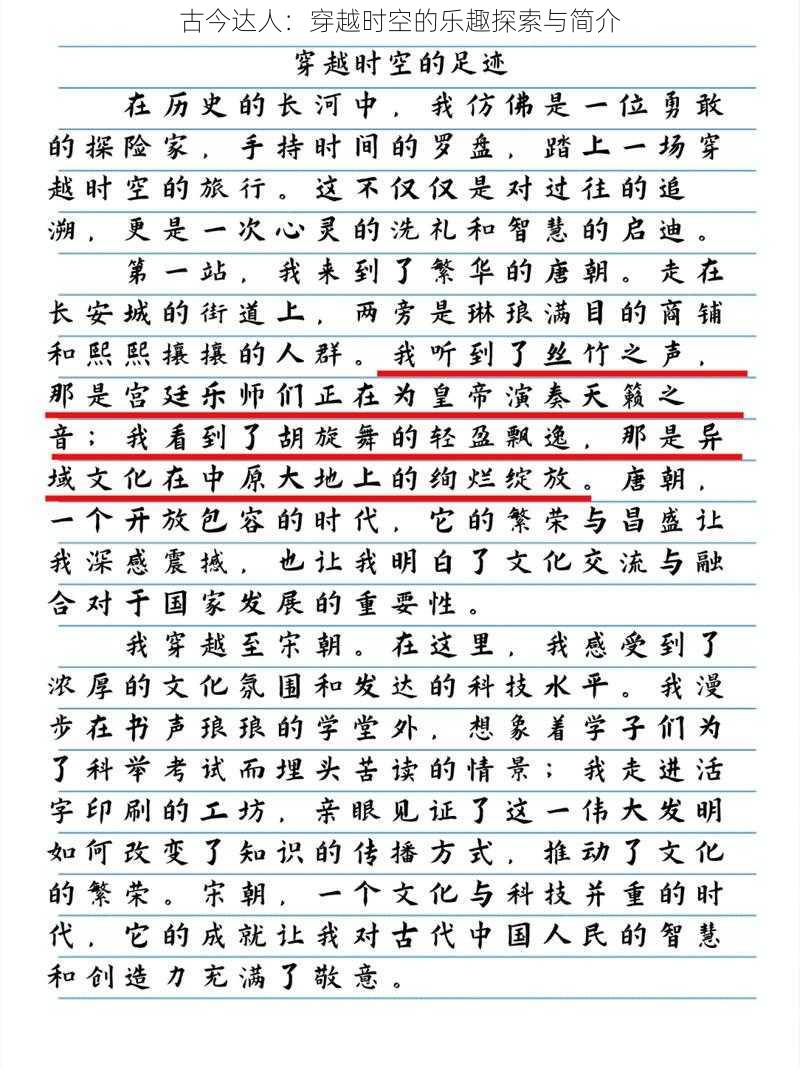 古今达人：穿越时空的乐趣探索与简介
穿越时空的足迹
在历史的长河中，我仿佛是一位勇敢
的探险家，手持时间的罗盘，踏上一场穿
越时空的旅行。这不仅仅是对过往的追
溯，更是一次心灵的洗礼和智慧的启迪。
第一站，我来到了繁华的唐朝。走在
长安城的街道上，两旁是琳琅满目的商铺
和熙熙攘攘的人群。我听到了丝竹之声，
那是宫廷乐师们正在为皇帝演奏天籁之
音；我看到了胡旋舞的轻盈飘逸，那是异
域文化在中原大地上的绚烂绽放。唐朝，
一个开放包容的时代，它的繁荣与昌盛让
我深感震撼，也让我明白了文化交流与融
合对于国家发展的重要性。
我穿越至宋朝。在这里，我感受到了
浓厚的文化氛围和发达的科技水平。我漫
步在书声琅琅的学堂外，想象着学子们为
了科举考试而埋头苦读的情景；我走进活
字印刷的工坊，亲眼见证了这一伟大发明
如何改变了知识的传播方式，推动了文化
的繁荣。宋朝，一个文化与科技并重的时
代，它的成就让我对古代中国人民的智慧
和创造力充满了敬意。